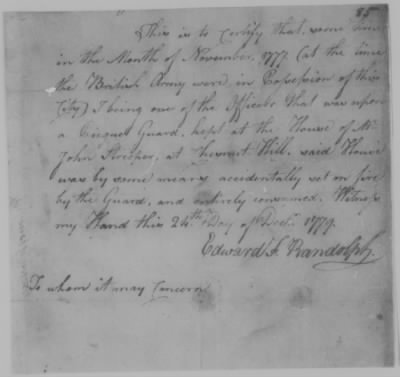 85
This is to Certify that, some time
in the Month of November, 1777 (at the time
the British Army were in Possession of this
City) I being one of the Officers that was upon
a Picquet Guard, kept at the House of Mr.
John Streeper, at Chesnut Hill, said House
was by some means accidentally set on fire
by the Guard, and entirely consumed. Witness
my Hand this 24th Day of Decr. 1779.
Edward F. Randolph.
To whom it may Concern